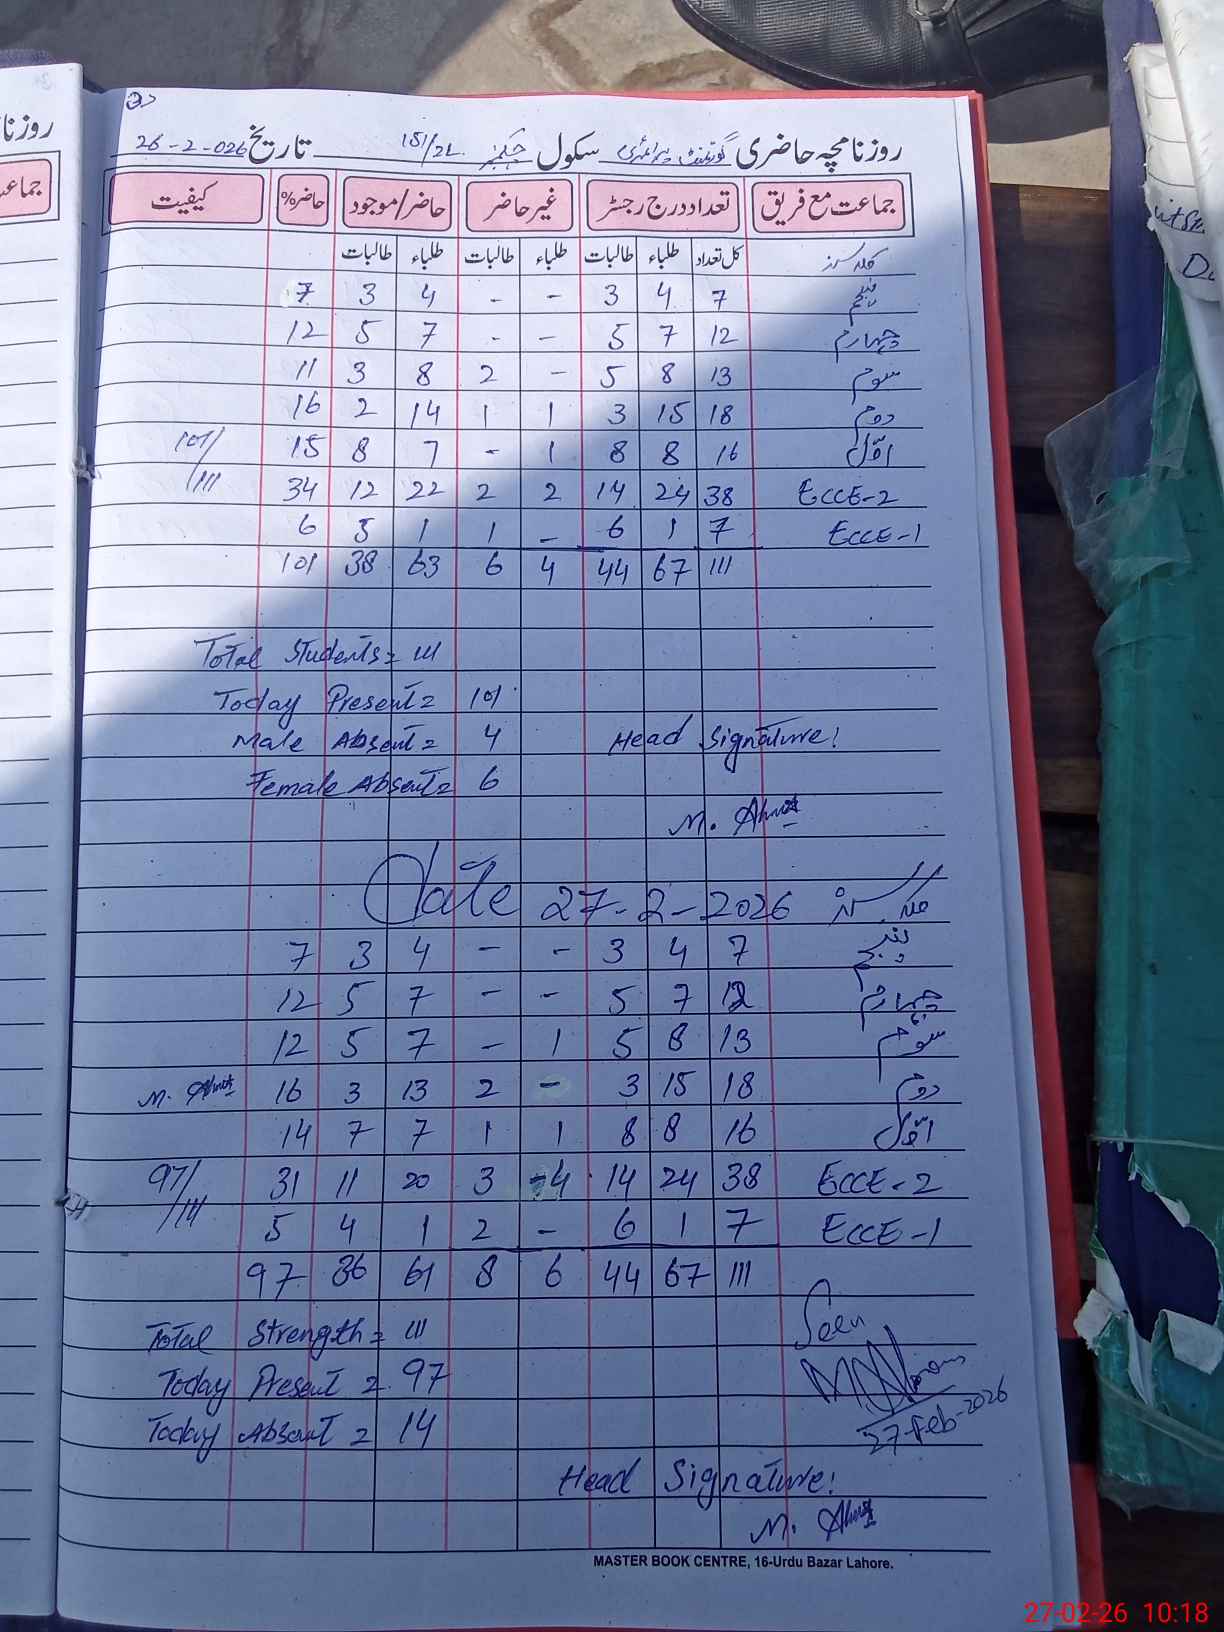 روزنامچہ حاضری گورنمنٹ پرائمری سکول 151/2L تاریخ 26-2-026
جماعت مع فریق تعداد درج رجسٹر غیر حاضر حاضر/موجود حاضر% کیفیت
کلاسز کل تعداد طلباء طالبات طلباء طالبات طلباء طالبات
پنجم 7 4 3 - - 4 3 7
چہارم 12 7 5 - - 7 5 12
سوم 13 8 5 - 2 8 3 11
دوم 18 15 3 1 1 14 2 16
اوّل 16 8 8 1 - 7 8 15 101/
ECCE-2 38 24 14 2 2 22 12 34 /111
ECCE-1 7 1 6 - 1 1 5 6
111 67 44 4 6 63 38 101
Total Students = 111
Today Present = 101
Male Absent = 4 Head Signature:
Female Absent = 6
M.
Date 27-2-2026 کلاسز
پنجم 7 4 3 - - 4 3 7
چہارم 12 7 5 - - 7 5 12
سوم 13 8 5 1 - 7 5 12
دوم 18 15 3 - 2 13 3 16 M.
اوّل 16 8 8 1 1 7 7 14
ECCE-2 38 24 14 4 3 20 11 31 97/
ECCE-1 7 1 6 - 2 1 4 5 /111
111 67 44 6 8 61 36 97
Total Strength = 111 Seen
Today Present = 97
Today Absent = 14 27-Feb-2026
Head Signature:
M.
MASTER BOOK CENTRE, 16-Urdu Bazar Lahore.
27-02-26 10:18